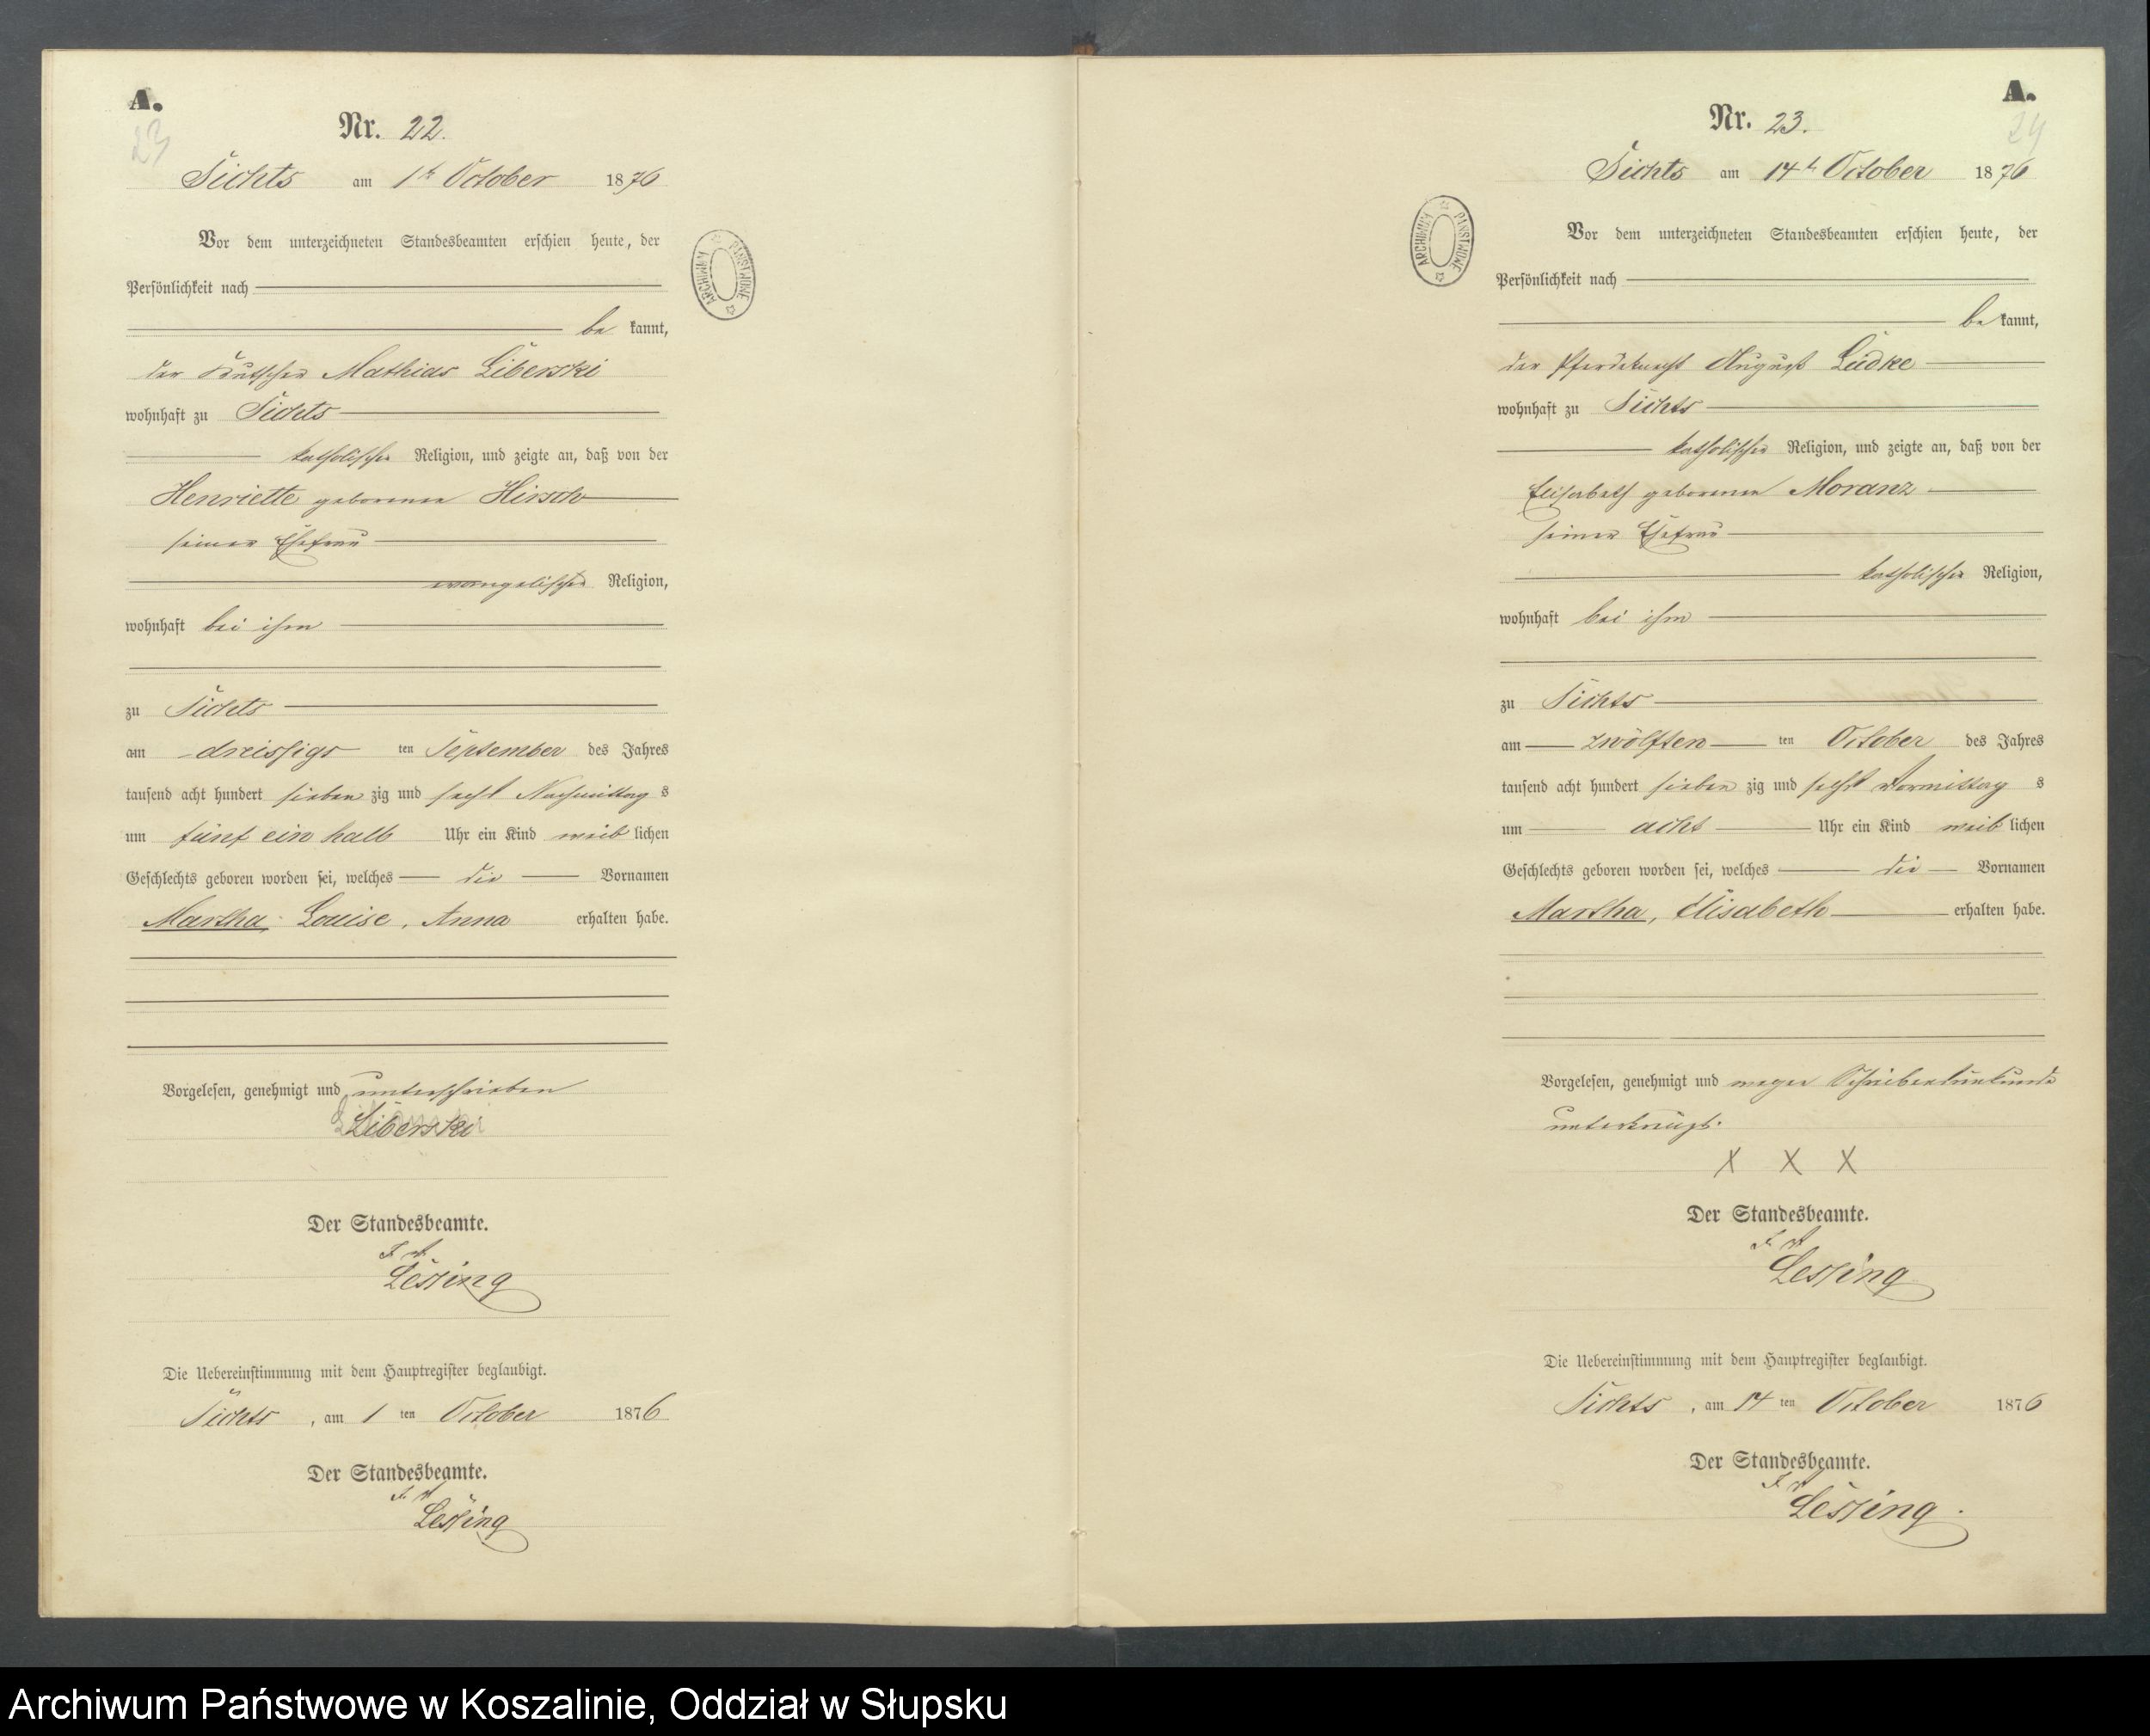 A.
23
Nr. 22.
Sichts am 1t October 1876
Vor dem unterzeichneten Standesbeamten erschien heute, der
Persönlichkeit nach
be kannt,
der Kutscher Mathias Liberski
wohnhaft zu Sichts
katholischer Religion, und zeigte an, daß von der
Henriette geborenen Hirsch
seiner Ehefrau
evangelischer Religion,
wohnhaft bei ihm
zu Sichts
am dreissigs ten September des Jahres
tausend acht hundert sieben zig und sechs Nachmittag s
um fünf ein halb Uhr ein Kind weib lichen
Geschlechts geboren worden sei, welches die Vornamen
Martha, Louise, Anna erhalten habe.
Vorgelesen, genehmigt und unterschrieben
Liberski
Der Standesbeamte.
Lessing
Die Uebereinstimmung mit dem Hauptregister beglaubigt.
Sichts, am 1 ten October 1876
Der Standesbeamte.
Lessing
ARCHIWUM PAŃSTWOWE
A.
24
Nr. 23.
Sichts am 14t October 1876
Vor dem unterzeichneten Standesbeamten erschien heute, der
Persönlichkeit nach
be kannt,
der Pferdeknecht August Lüdke
wohnhaft zu Sichts
katholischer Religion, und zeigte an, daß von der
Elisabeth geborenen Moranz
seiner Ehefrau
katholischer Religion,
wohnhaft bei ihm
zu Sichts
am zwölften ten October des Jahres
tausend acht hundert sieben zig und sechs Vormittag s
um acht Uhr ein Kind weib lichen
Geschlechts geboren worden sei, welches die Vornamen
Martha, Elisabeth erhalten habe.
Vorgelesen, genehmigt und wegen Schreibensunkunde
unterkreuzt.
X X X
Der Standesbeamte.
Lessing
Die Uebereinstimmung mit dem Hauptregister beglaubigt.
Sichts, am 14 ten October 1876
Der Standesbeamte.
Lessing.
ARCHIWUM PAŃSTWOWE
Archiwum Państwowe w Koszalinie, Oddział w Słupsku